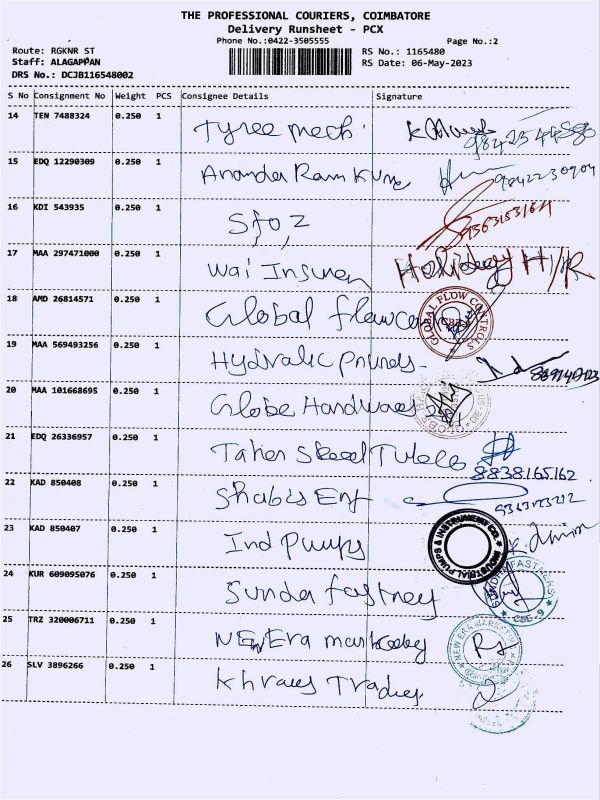 THE PROFESSIONAL COURIERS, COIMBATORE
Delivery Runsheet - PCX
Phone No.:0422-3505555 Page No.:2
Route: RGKNR ST RS No.: 1165480
Staff: ALAGAPPAN RS Date: 06-May-2023
DRS No.: DCJB116548002
S No Consignment No Weight PCS Consignee Details Signature
14 TEN 7488324 0.250 1 Tyree mech.
15 EDQ 12290309 0.250 1 Ananda Ram 9842230904
16 KDI 543935 0.250 1
17 MAA 297471000 0.250 1 Wai Insuren Holiday H/R
18 AMD 26814571 0.250 1 Global flow GLOBAL FLOW CONTROLS
19 MAA 569493256 0.250 1 Hydralic
20 MAA 101668695 0.250 1 Globe Handwares
21 EDQ 26336957 0.250 1 8838165162
22 KAD 850408 0.250 1
23 KAD 850407 0.250 1 Ind Pumps INDUSTRIAL PUMPS & INSTRUMENTS CO.
24 KUR 609095076 0.250 1 Sunda CBE-9
25 TRZ 320006711 0.250 1 NEW Era NEW ERA
26 SLV 3896266 0.250 1